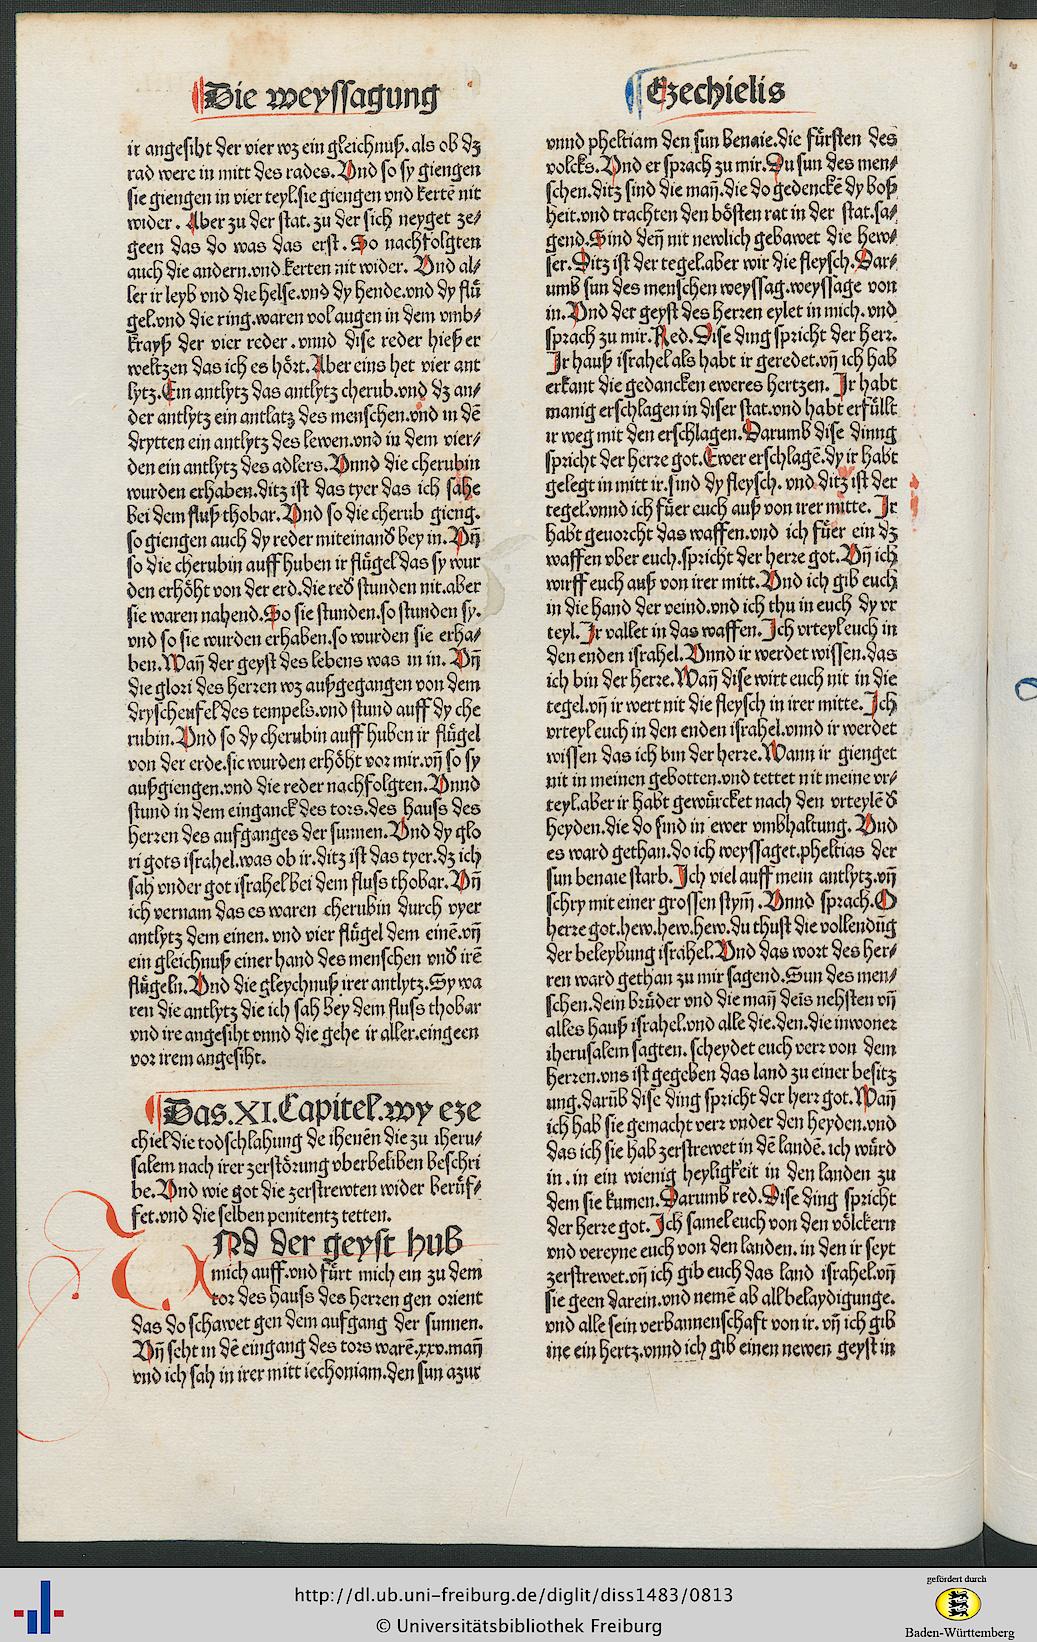 Die weyssagung
ir angesiht der vier wz ein gleichnuß. als ob dz
rad were in mitt des rades. Vnd so sy giengen
sie giengen in vier teyl. sie giengen vnd kertē nit
wider. Aber zu der stat. zu der sich neyget ze⸗
geen das do was das erst. So nachfolgten
auch die andern. vnd kerten nit wider. Vnd al⸗
ler ir leyb vnd die helse. vnd dy hende. vnd dy flü
gel. vnd die ring. waren vol augen in dem vmb⸗
krayß der vier reder. vnnd dise reder hieß er
weltzen das ich es hört. Aber eins het vier ant
lytz. Ein antlytz das antlytz cherub. vnd dz an⸗
der antlytz ein antlatz des menschen. vnd in dē
drytten ein antlytz des lewen. vnd in dem vier⸗
den ein antlytz des adlers. Vnnd die cherubin
wurden erhaben. ditz ist das tyer das ich sahe
bei dem fluß thobar. Vnd so die cherub gieng.
so giengen auch dy reder miteinand bey in. Vñ
so die cherubin auff huben ir flügel das sy wur
den erhöht von der erd. die red stunden nit. aber
sie waren nahend. So sie stunden. so stunden sy.
vnd so sie wurden erhaben. so wurden sie erha⸗
ben. Wañ der geyst des lebens was in in. Vñ
die glori des herren wz außgegangen von dem
dryscheufel des tempels. vnd stund auff dy che
rubin. Vnd so dy cherubin auff huben ir flügel
von der erde. sie wurden erhöht vor mir. vñ so sy
außgiengen. vnd die reder nachfolgten. Vnnd
stund in dem einganck des tors. des hauss des
herren des aufganges der sunnen. Vnd dy glo
ri gots israhel. was ob ir. ditz ist das tyer. dz ich
sah vnder got israhel bei dem fluss thobar. Vñ
ich vernam das es waren cherubin durch vyer
antlytz dem einen. vnd vier flügel dem einē. vñ
ein gleichnuß einer hand des menschen vnd irē
flügeln. Vnd die gleychnuß irer antlytz. Sy wa
ren die antlytz die ich sah bey dem fluss thobar
vnd ire angesiht vnnd die gehe ir aller. eingeen
vor irem angesiht.
Das. XI. Capitel. wy eze
chiel die todschlahung de ihenēn die zu iheru⸗
salem nach irer zerstörung vberbeliben beschri
be. Vnd wie got die zerstrewten wider berüf⸗
fet. vnd die selben penitentz tetten.
VNd der geyst hub
mich auff. vnd fürt mich ein zu dem
tor des hauss des herren gen orient
das do schawet gen dem aufgang der sunnen.
Vñ seht in dē eingang des tors warē. xxv. mañ
vnd ich sah in irer mitt iechoniam. den sun azur
Ezechielis
vnnd pheltiam den sun benaie. die fürsten des
volcks. Vnd er sprach zu mir. Du sun des men⸗
schen. ditz sind die mañ. die do gedenckē dy boß
heit. vnd trachten den bösten rat in der stat. sa⸗
gend. Sind deñ nit newlich gebawet die hew⸗
ser. Ditz ist der tegel. aber wir die fleysch. Dar⸗
umb sun des menschen weyssag. weyssage von
in. Vnd der geyst des herren eylet in mich. vnd
sprach zu mir. Red. Dise ding spricht der herr.
Ir hauß israhel als habt ir geredet. vñ ich hab
erkant die gedancken eweres hertzen. Ir habt
manig erschlagen in diser stat. vnd habt erfüllt
ir weg mit den erschlagen. Darumb dise dinng
spricht der herre got. Ewer erschlagē. dy ir habt
gelegt in mitt ir. sind dy fleysch. vnd ditz ist der
tegel. vnnd ich füer euch auß von irer mitte. Ir
habt geuorcht das waffen. vnd ich füer ein dz
waffen vber euch. spricht der herre got. Vñ ich
wirff euch auß von irer mitt. Vnd ich gib euch
in die hand der veind. vnd ich thu in euch dy vr
teyl. Ir vallet in das waffen. Ich vrteyl euch in
den enden israhel. Vnnd ir werdet wissen. das
ich bin der herre. Wañ dise wirt euch nit in die
tegel. vñ ir wert nit die fleysch in irer mitte. Ich
vrteyl euch in den enden israhel. vnnd ir werdet
wissen das ich bin der herre. Wann ir gienget
nit in meinen gebotten. vnd tettet nit meine vr⸗
teyl. aber ir habt gewürcket nach den vrteylē d
heyden. die do sind in ewer vmbhaltung. Vnd
es ward gethan. do ich weyssaget. pheltias der
sun benaie starb. Ich viel auff mein antlytz. vñ
schry mit einer grossen stym̄. Vnnd sprach. O
herre got. hew. hew. hew. du thust die vollendūg
der beleybung israhel. Vnd das wort des her⸗
ren ward gethan zu mir sagend. Sun des men⸗
schen. dein brüder vnd die mañ deis nehsten vñ
alles hauß israhel. vnd alle die. den. die inwoner
iherusalem sagten. scheydet euch verr von dem
herren. vns ist gegeben das land zu einer besitz
ung. darūb dise ding spricht der herr got. Wañ
ich hab sie gemacht verr vnder den heyden. vnd
das ich sie hab zerstrewet in dē landē. ich würd
in. in ein wienig heyligkeit in den landen zu
dem sie kumen. Darumb red. Dise ding spricht
der herre got. Ich samel euch von den völckern
vnd vereyne euch von den landen. in den ir seyt
zerstrewet. vñ ich gib euch das land israhel. vñ
sie geen darein. vnd nemē ab all belaydigunge.
vnd alle sein verbannenschaft von ir. vñ ich gib
ine ein hertz. vnnd ich gib einen newen geyst in
http://dl.ub.uni-freiburg.de/diglit/diss1483/0813
© Universitätsbibliothek Freiburg
gefördert durch
Baden-Württemberg